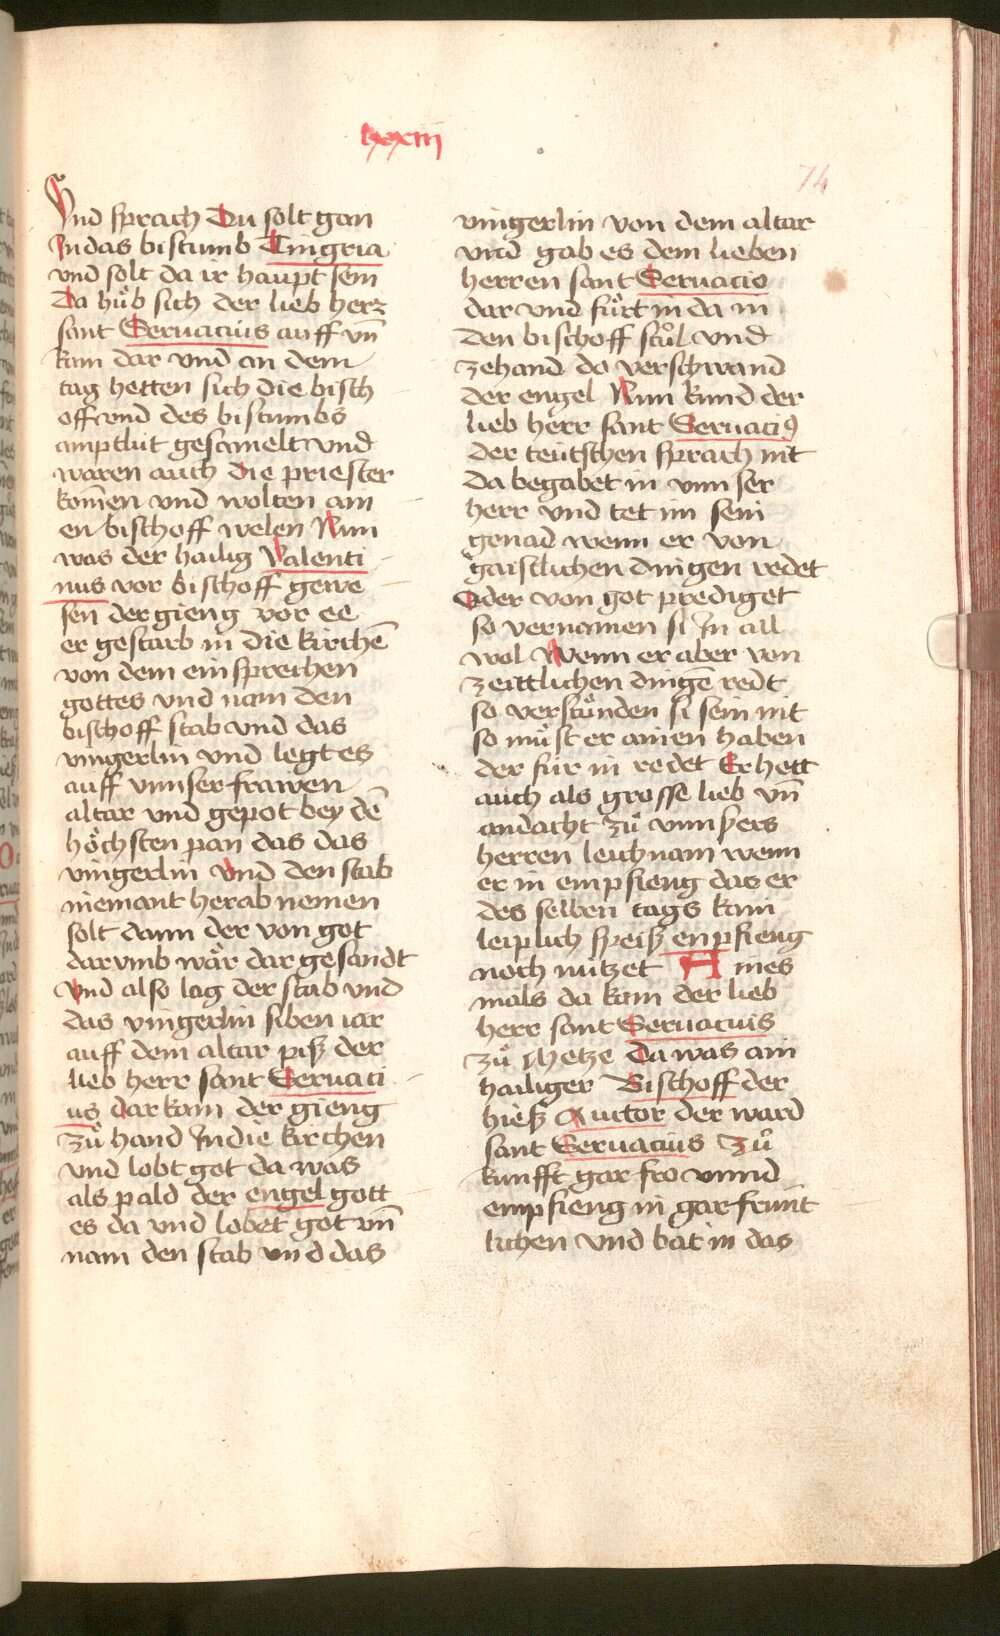 lxxiii
74
Vnd sprach Du solt gan
In das bistumb Tingria
vnd solt da ir haupt sein
Da hůb sich der lieb herr
sant Seruacius auff vn̄
kam dar vnd an dem
tag hetten sich die bisch
off vnd des bistumbs
amptlüt gesamelt vnd
waren auch die priester
kom̄en vnd wolten ain
en bischoff welen Nun
was der hailig Valenti
nus vor bischoff gewe
sen der gieng vor ee
er gestarb in die kirchē
von dem ein sprechen
gottes vnd nam den
bischoff stab vnd das
vingerlin vnd legt es
auff vnnser frawen
altar vnd gepot bey dē
höchsten pan das das
vingerlin vnd den stab
niemant herab nemen
solt dann der von got
dar vmb wär dar gesandt
Vnd also lag der stab vnd
das vingerlin siben iar
auff dem altar piß der
lieb herr sant Seruaci
us dar kam der gieng
zů hand In die kirchen
vnd lobt got da was
als pald der engel gott
es da vnd lobet got vn̄
nam den stab vnd das
vingerlin von dem altar
vnd gab es dem lieben
herren sant Seruacio
dar vnd fůrt in da in
den bischoff stůl vnd
zehand do verschwand
der engel Nun kund der
lieb herr sant Seruaciꝰ
der teütschen sprach nit
da begabet in vnnser
herr vnd tet im sein
genad wenn er von
gaistlichen dingen redet
Oder von got prediget
so vernamen si In all
wol Wenn er aber von
zeittlichen dingē redt
so verstůnden si sein nit
so můst er ainen haben
der für in redet Er hett
auch als grosse lieb vn̄
andacht zů vnnsers
herren leichnam wenn
er in empfieng das er
des selben tags kain
leiplich speiß enpfieng
noch nutzet Aines
mals da kam der lieb
herr sant Seruacius
zů Metze Da was ain
hailiger Bischoff der
hieß Auctor der ward
sant Seruacius zů
kunfft gar fro vnnd
empfieng in gar frünt
lichen vnd bat in das